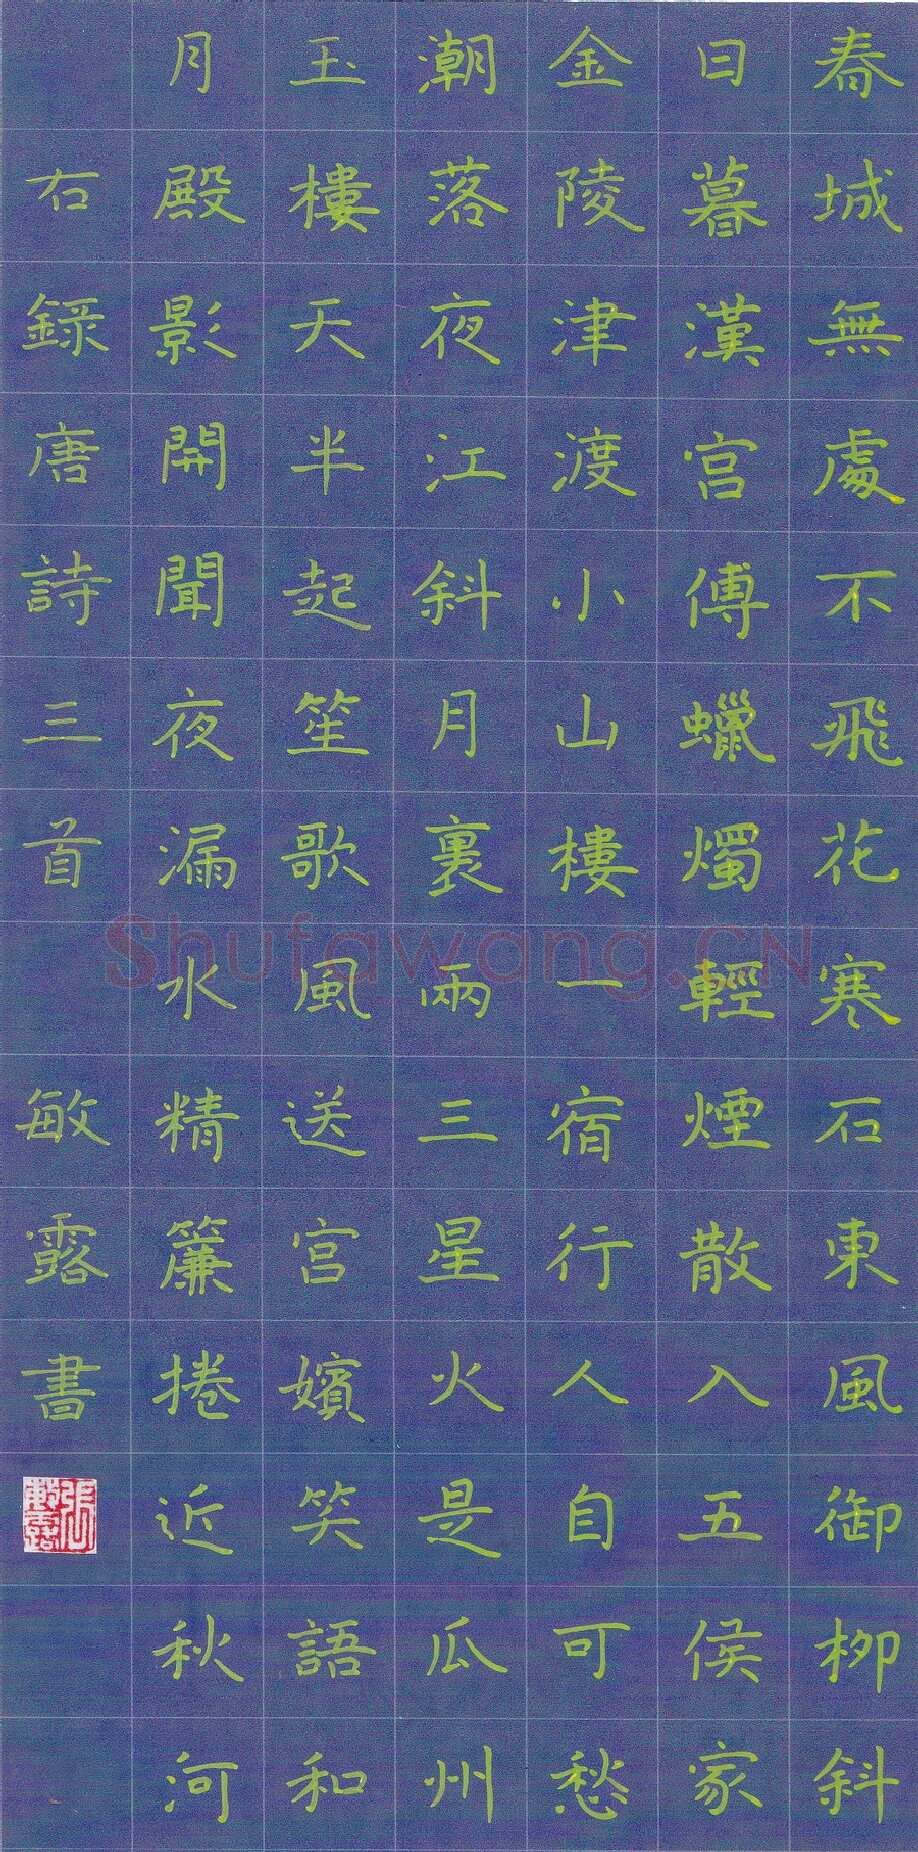 春城無處不飛花寒石東風御柳斜
日暮漢宫傅蠟燭輕煙散入五侯家
金陵津渡小山樓一宿行人自可愁
潮落夜江斜月裏兩三星火是瓜州
玉樓天半起笙歌風送宫嬪笑語和
月殿影開聞夜漏水精簾捲近秋河
右錄唐詩三首 敏露書
Shufawang.CN